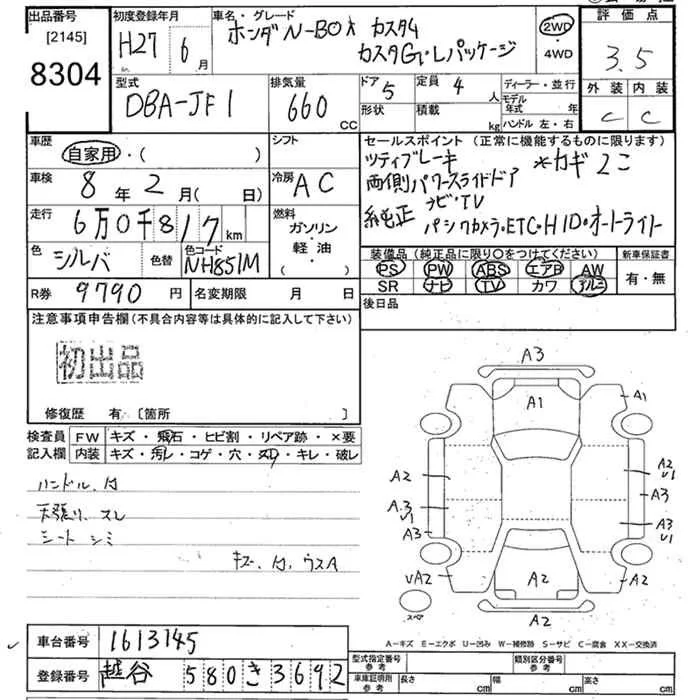 出品番号
[2145]
8304
初度登録年月
H27 6月
車名・グレード
ホンダ N-BOX カスタム
カスタG・Lパッケージ
2WD
・
4WD
評価点
3.5
外装 内装
C C
型式
DBA-JF1
排気量
660
CC
ドア 5
形状
定員 4 人
積載 kg
ディーラー・並行
モデル年式 年
ハンドル 左・右
車歴
自家用・( )
シフト
車検
8年 2月( 日)
冷房
AC
走行
6万0千817km
燃料
ガソリン
軽・油
・
色
シルバ
色替
色コード
NH851M
R券 9790 円
名変期限 月 日
セールスポイント (正常に機能するものに限ります)
ツティブレーキ *カギ2コ
両側パワースライドドア
純正 ナビ・TV
バックカメラ・ETC・HID・オートライト
装備品 (純正品に限り〇をつけてください)
PS PW ABS エアB AW
SR ナビ TV カワ アルミ
新車保証書
有・無
後日品
注意事項申告欄(不具合内容等は具体的に記入して下さい)
初出品
修復歴 有 〔箇所 〕
検査員 FW キズ・飛石・ヒビ割・リペア跡・×要
記入欄 内装 キズ・汚レ・コゲ・穴・スレ・キレ・破レ
ハンドル.
天張り.スレ
シート シミ
キズ. ウスA
A3
A1
A1
A2
A2
V1
A.3
V1
A3
A3
A3
V1
VA2
A2
A2
スペア
A2
A−キズ E−エクボ U−凹み W−補修跡 S−サビ C−腐食 XX−交換済
車台番号 1613145
登録番号 越谷 580 き 3692
型式指定番号
参考
類別区分番号
参考
車庫証明用
参考
長さ cm 幅 cm 高さ cm